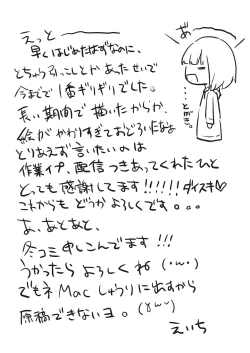 えっと
早くはじめたはずなのに、
とちゅう引っこしとかあったせいで
今までで1番ギリギリでした。
長い期間で描いたからか、
絵がかわりすぎておどろいたなぁ
とりあえず言いたいのは
作業イプ、配信つきあってくれたひと
とっても感謝してます!!!!!!ダイスキ♡
これからもどうかよろしくです。。。
あ、あとあと、
冬コミ申しこんでます!!!
うかったらよろしくね(・ω・)
でもネMacしゅうりに出すから
原稿できないヨ。(
えいち
あ